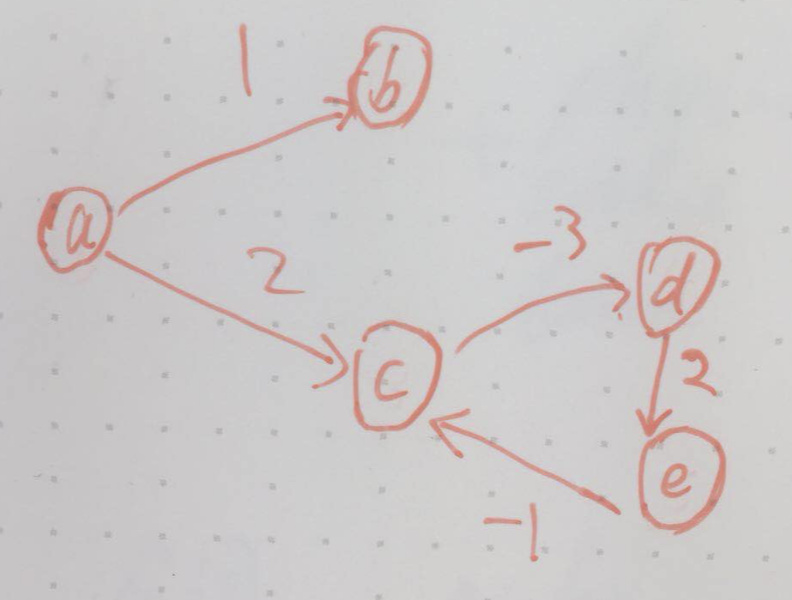 1
b
a
2
-3
d
c
2
e
-1